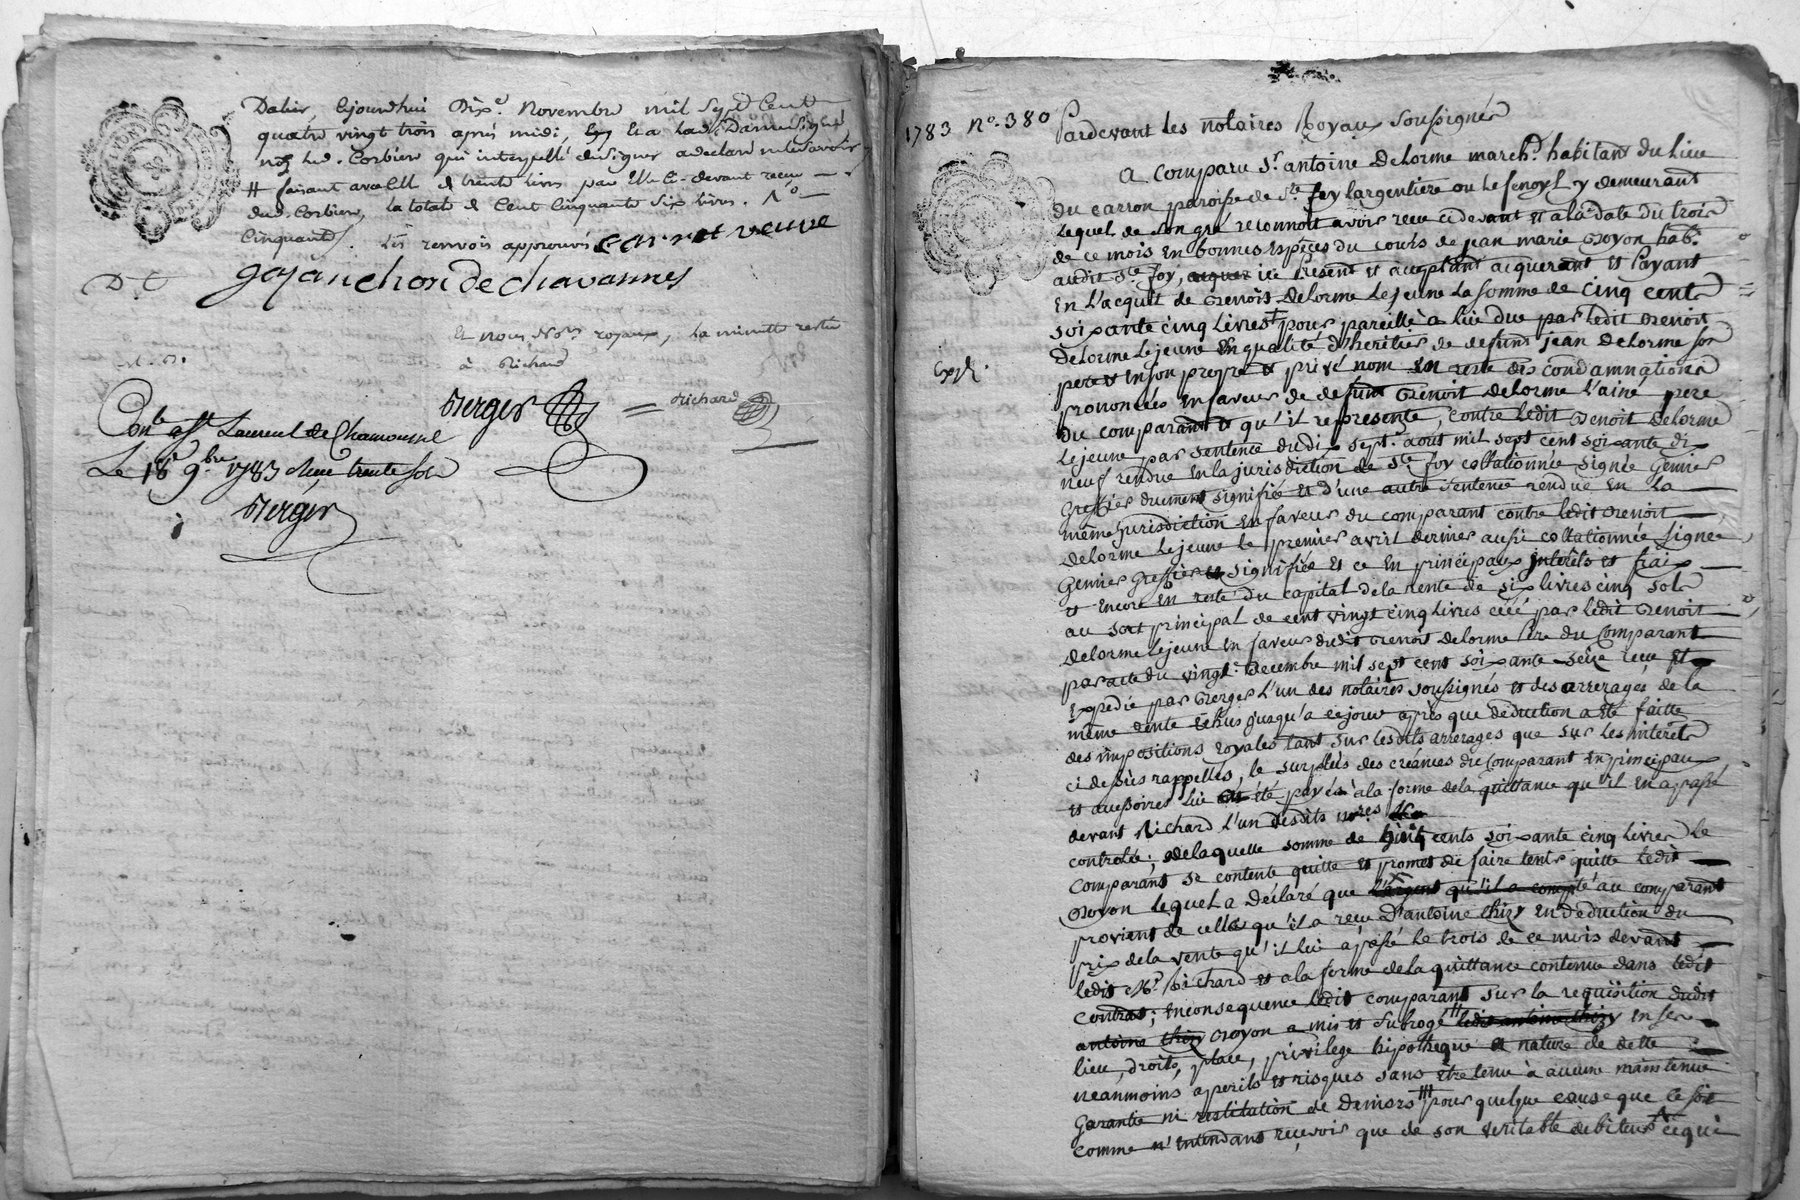 Dalier, cejourdhui Dix.e Novembre mil Sept Cent
quatre vingt trois après midi, et a lad. Dame signé
non led. Corbier qui interpellé de signer a declaré ne le savoir
# faisant avec de trente livres par elle ci-devant receu
dud. Corbier, la totale de Cent Cinquante six livres.
Cinquante renvois approuvés
carret veuve
gojanchon de chavannes
Et nous No.res royaux, la minutte restée
à Richard
Berger = Richard
Con.lé à St Laurent de Chamousset
Le 18e 9.bre 1783 Reçu trente sols
Berger
1783 N.o 380
Expé.
Pardevant les notaires Royaux Soussignés
A Comparu S.r antoine Delorme march.d habitant du lieu
du carron paroisse de S.te foy l'argentiere ou le senoyl y demeurant
Lequel de son gré reconnoit avoir receu cidevant et a la date du trois
de ce mois en bonnes Espèces du cours de jean marie Goyon hab.t
audit S.te foy, acquer ice Present et acceptant acquerant et Payant
En L'acquit de Benoit Delorme Lejeune La somme de cinq cents
soixante cinq Livres pour pareille a lui due par ledit Benoit
Delorme Lejeune En qualité d'heritier de defunt jean Delorme son
pere et en son propre et privé nom en reste des condamnations
prononcées en faveur de defunt Benoit Delorme L'ainé pere
du comparant et qu'il represente, contre ledit Benoit Delorme
Lejeune par sentence du dix sept.e aout mil sept cent soixante dix
neuf rendue en la jurisdiction de S.te foy collationnée signée Genier
Greffier duement signifiée et d'une autre sentence rendue en la
même Jurisdiction en faveur du comparant contre ledit Benoit
Delorme Lejeune le premier avril dernier aussi collationnée signée
Genier Greffier et signifiée et ce en principaux intérêts et frais
et encore en reste du capital de la rente de six livres cinq sols
au sort principal de cent vingt cinq livres créé par ledit Benoit
Delorme Lejeune en faveur dudit Benoit Delorme Père du Comparant
par acte du vingt Decembre mil sept cent soixante seize receu et
Expedié par Berger L'un des notaires soussignés et des arrerages de la
même rente échus jusqu'a ce jour après que déduction a été faitte
des impositions royales tant sur lesdits arrerages que sur les interêts
ci dessus rappellés, le surplus des créances du Comparant en principaux
et accessoires lui été payés à la forme de la quittance qu'il en a passé
devant Richard L'un desdits no.res
controlée; de laquelle somme de cinq cents soixante cinq livres le
Comparant se contente quitte et promet de faire tenir quitte ledit
Goyon lequel a Déclaré que L'argent qu'il a compté au comparant
provient de celle qu'il a reçu D'antoine thizy en déduction du
prix de la vente qu'il lui a passé le trois de ce mois devant
ledit M.e Richard et a la forme de la quittance contenue dans ledit
contrat; en consequence ledit comparant sur la requisition dudit
antoine thizy Goyon a mis et subrogé ledit antoine thizy en ses
lieu, droits, place, privilege hipotheque et nature de dette
neanmoins a perils et risques sans être tenu à aucune maintenue
Garantie ni restitution de deniers pour quelque cause que ce soit
comme n'entendant recevoir que de son veritable debiteur ce qui